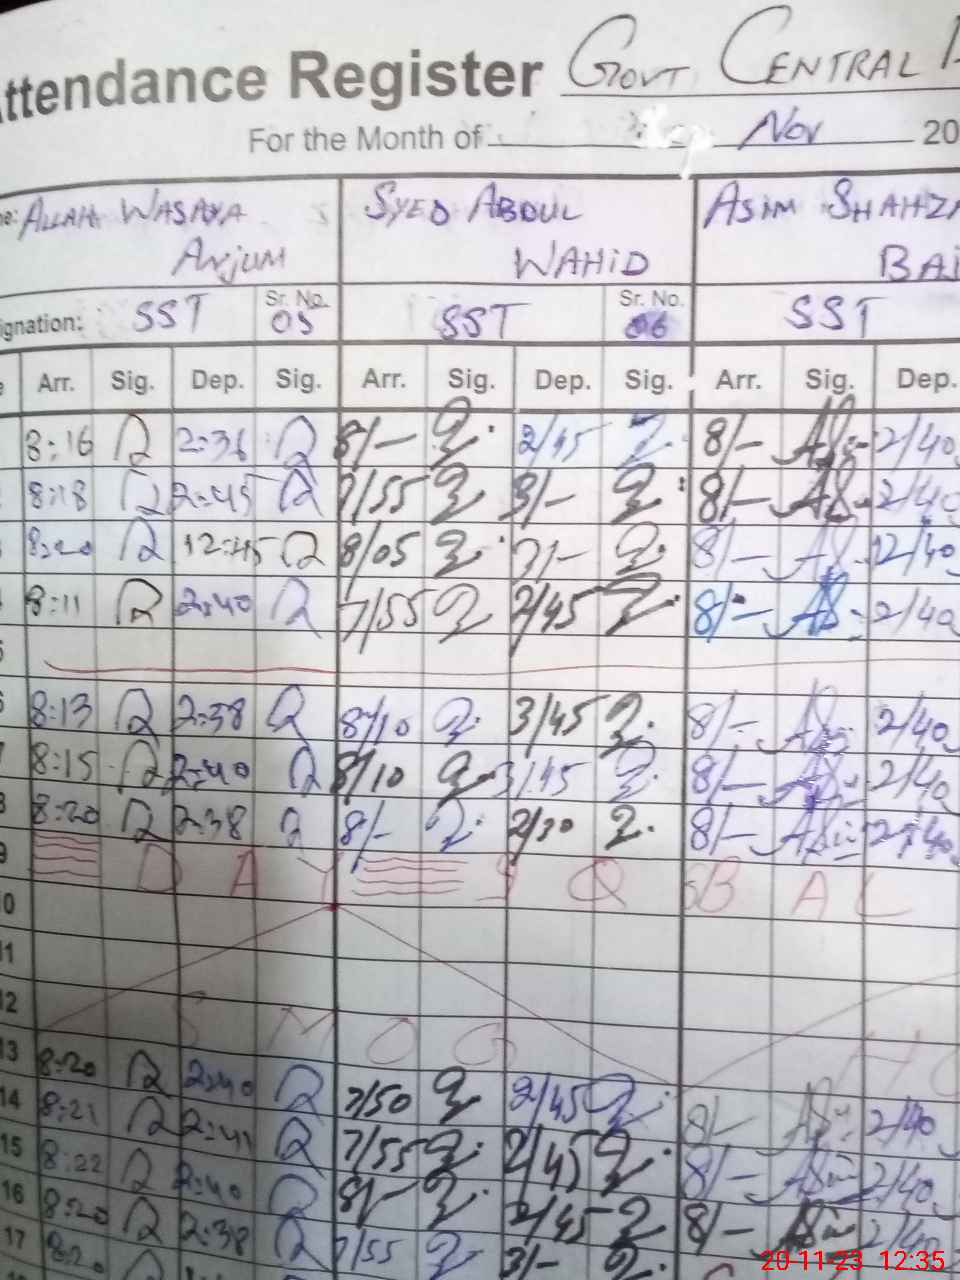 ttendance Register GOVT. CENTRAL
For the Month of Nov 20
ALLAH WASAYA SYED ABDUL ASIM SHAHZA
ANJUM WAHID BAI
ignation: SST Sr. No. 05 SST Sr. No. 06 SST
Arr. Sig. Dep. Sig. Arr. Sig. Dep. Sig. Arr. Sig. Dep.
8:16 2:36 8/- 2/45 8/- 2/40
8:18 2:45 7/55 3/- 8/- 2/40
8:20 12:45 8/05 3/- 8/- 12/40
8:11 2:40 7/55 2/45 8/- 2/40
5
6 8:13 2:38 8/10 3/45 8/- 2/40
7 8:15 2:40 8/10 3/45 8/- 2/40
8 8:20 2:38 8/- 2/30 8/- 2/40
9 D A Y I Q B A L
10
11
12 S M O G
13 8:20 2:40 7/50 2/45 8/- 2/40
14 8:21 2:41 7/55 2/45 8/- 2/40
15 8:22 2:40 8/- 2/45 8/- 2/40
16 8:20 2:38 7/55 3/-
17
20-11-23 12:35